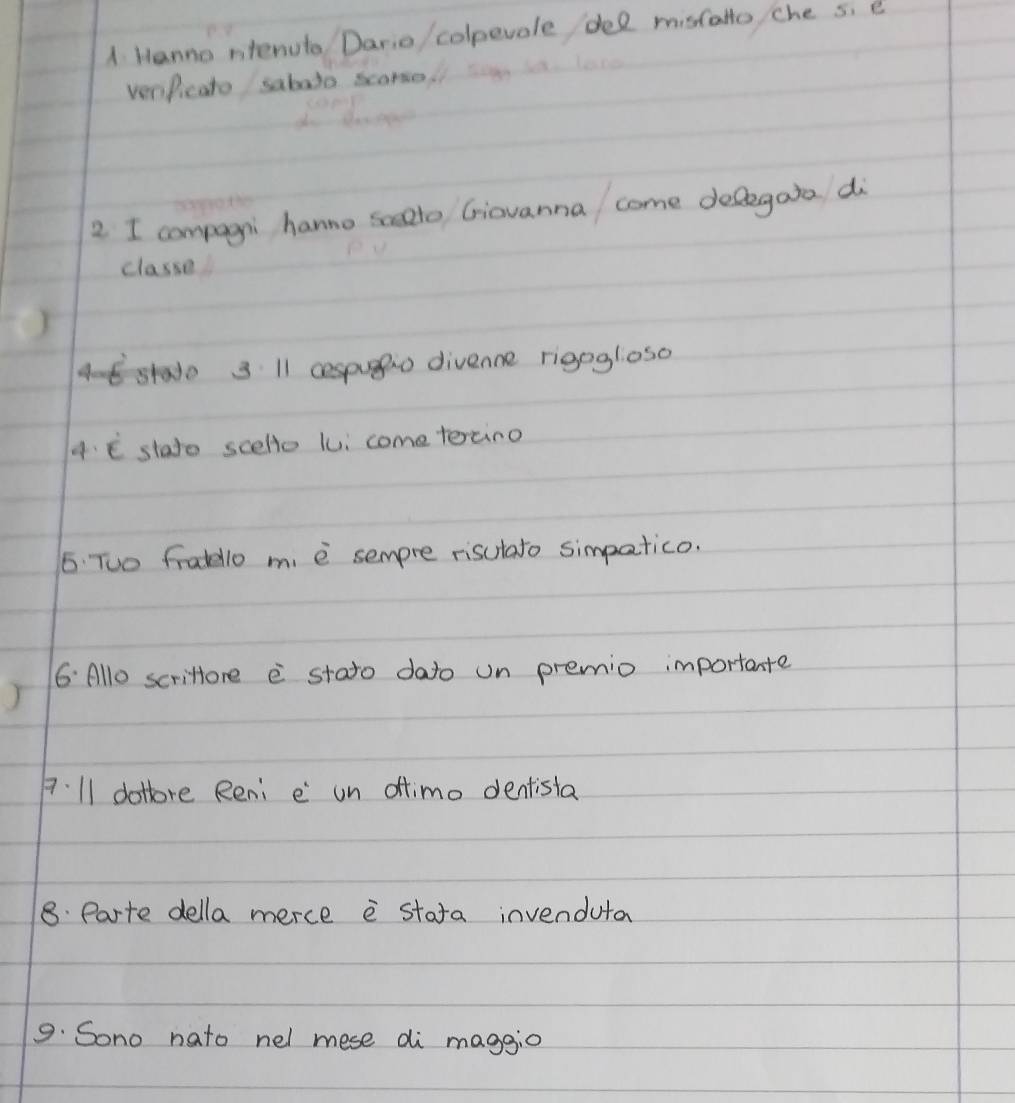 1. Hanno ritenuto / Dario / colpevole / del misfatto / che si è
verificato / sabato scorso //
2 I compagni hanno scelto / Giovanna / come delegata / di
classe
4 È stato 3. Il cespuglio divenne rigoglioso
4. È stato scelto lui come terzino
5. Tuo fratello mi è sempre risultato simpatico.
6. Allo scrittore è stato dato un premio importante
7. Il dottore Reni è un ottimo dentista
8. Parte della merce è stata invenduta
9. Sono nato nel mese di maggio